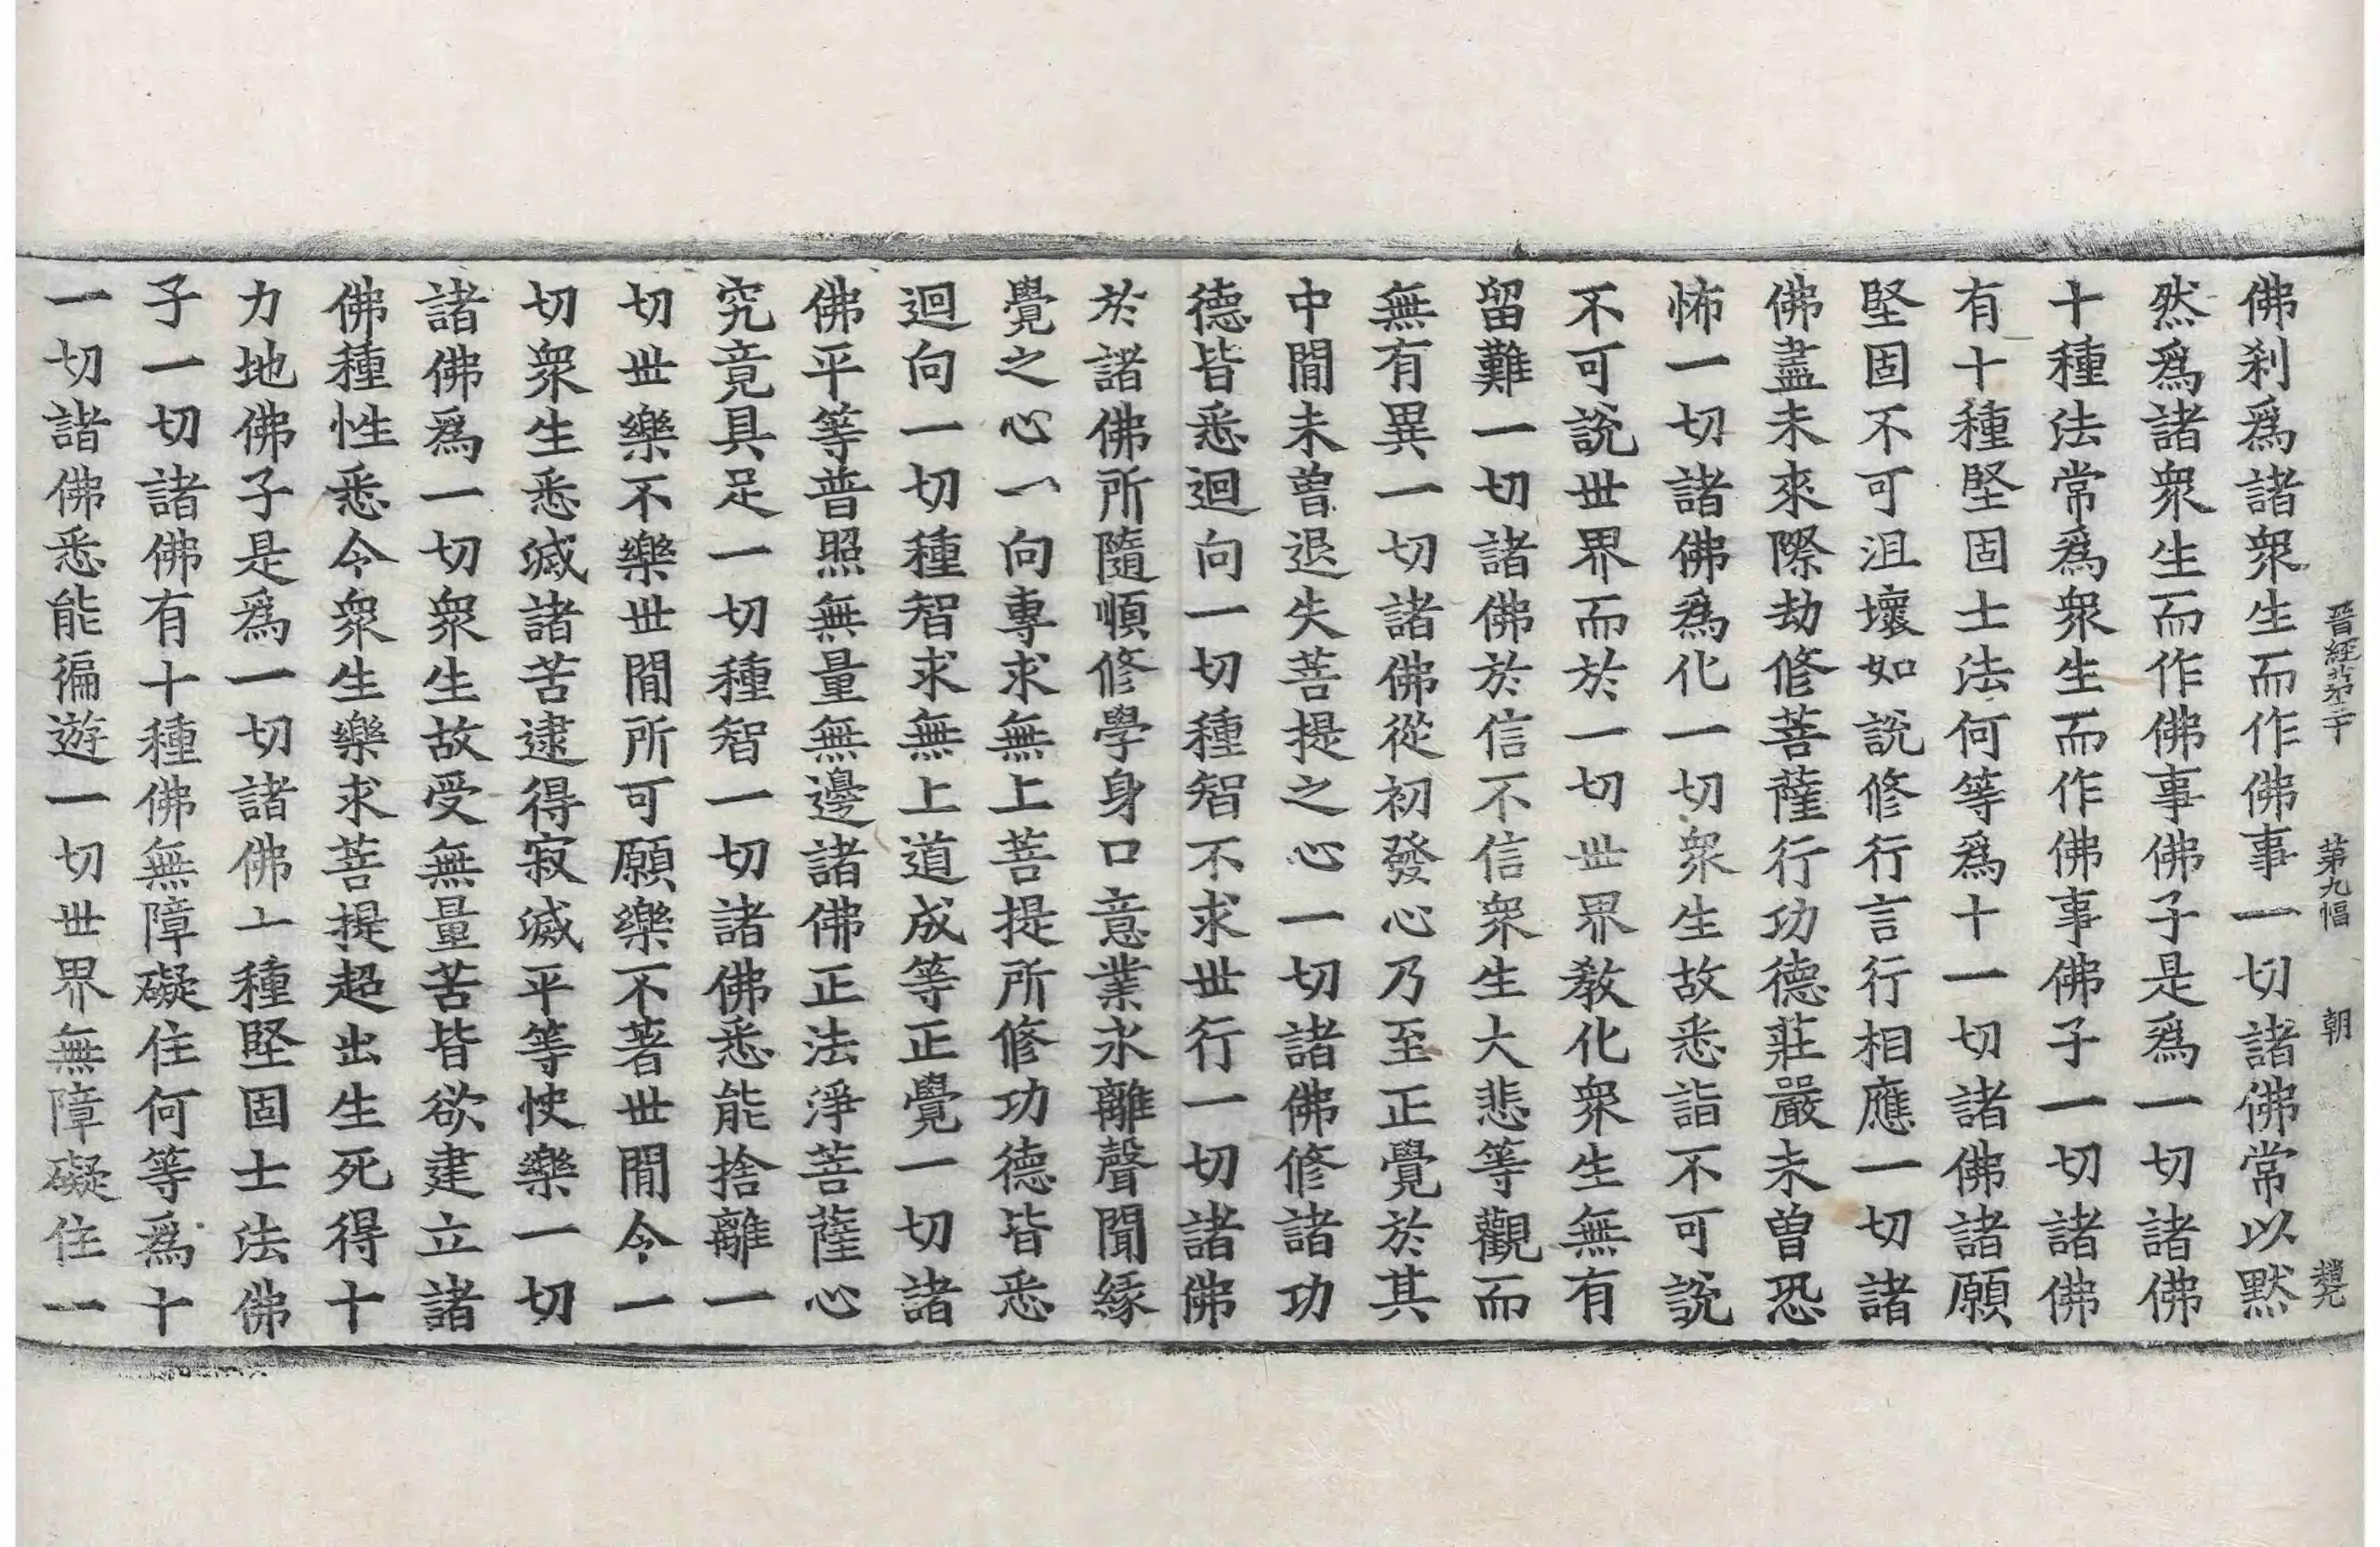 晉經卅第二十　第九幅　朝　趙元
佛刹爲諸衆生而作佛事一切諸佛常以默
然爲諸衆生而作佛事佛子是爲一切諸佛
十種法常爲衆生而作佛事佛子一切諸佛
有十種堅固士法何等爲十一切諸佛諸願
堅固不可沮壞如說修行言行相應一切諸
佛盡未來際劫修菩薩行功德莊嚴未曾恐
怖一切諸佛爲化一切衆生故悉詣不可說
不可說世界而於一切世界教化衆生無有
留難一切諸佛於信不信衆生大悲等觀而
無有異一切諸佛從初發心乃至正覺於其
中間未曾退失菩提之心一切諸佛修諸功
德皆悉迴向一切種智不求世行一切諸佛
於諸佛所隨順修學身口意業永離聲聞緣
覺之心一向專求無上菩提所修功德皆悉
迴向一切種智求無上道成等正覺一切諸
佛平等普照無量無邊諸佛正法淨菩薩心
究竟具足一切種智一切諸佛悉能捨離一
切世樂不樂世間所可願樂不著世間令一
切衆生悉滅諸苦逮得寂滅平等快樂一切
諸佛爲一切衆生故受無量苦皆欲建立諸
佛種性悉令衆生樂求菩提超出生死得十
力地佛子是爲一切諸佛十種堅固士法佛
子一切諸佛有十種佛無障礙住何等爲十
一切諸佛悉能徧遊一切世界無障礙住一